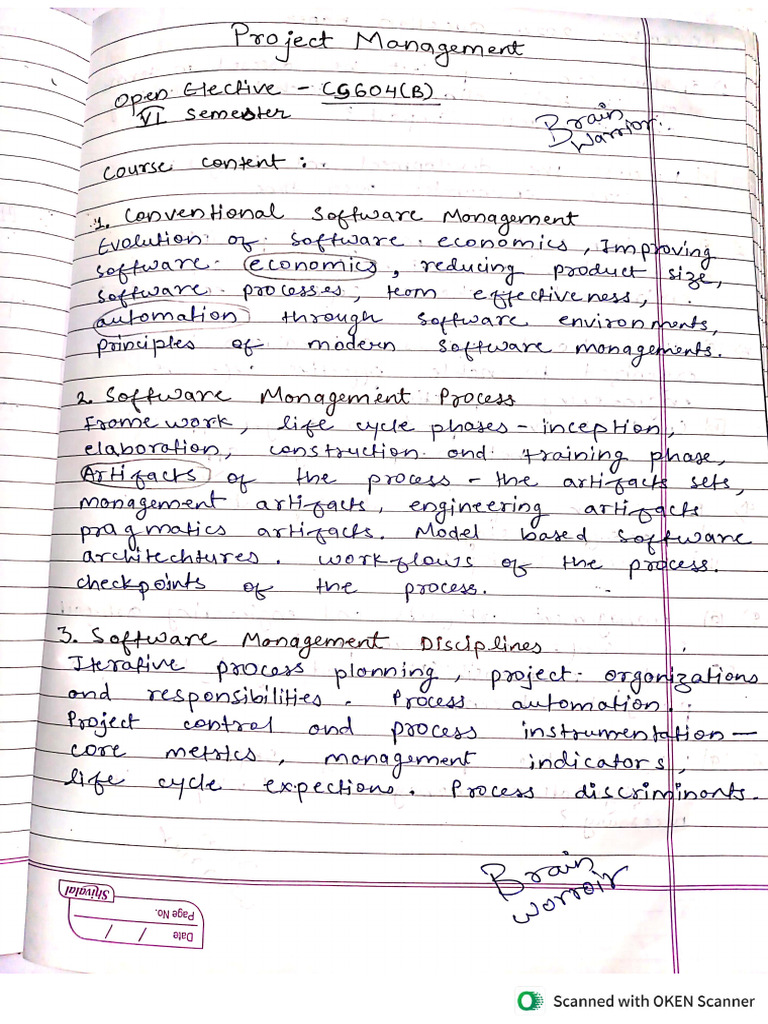 Project Management
Open Elective - CS604(B)
VI Semester
Brain
Warrior..
Course Content :.
1. Conventional Software Management
Evolution of software economics, Improving
software economics, reducing product size,
software processes, team effectiveness,
automation through software environments,
principles of modern software managements.
2. Software Management Process
Frame work, life cycle phases - inception,
elaboration, construction and training phase,
Artifacts of the process - the artifacts sets,
management artifacts, engineering artifacts
pragmatics artifacts. Model based software
architechtures. workflows of the process.
checkpoints of the process.
3. Software Management Disciplines
Iterative process planning, project organizations
and responsibilities. Process automation.
Project control and process instrumentation —
core metrics, management indicators,
life cycle expections. Process discriminants.
Brain
worroir
Shivalal
Page No.
Date / /
Scanned with OKEN Scanner